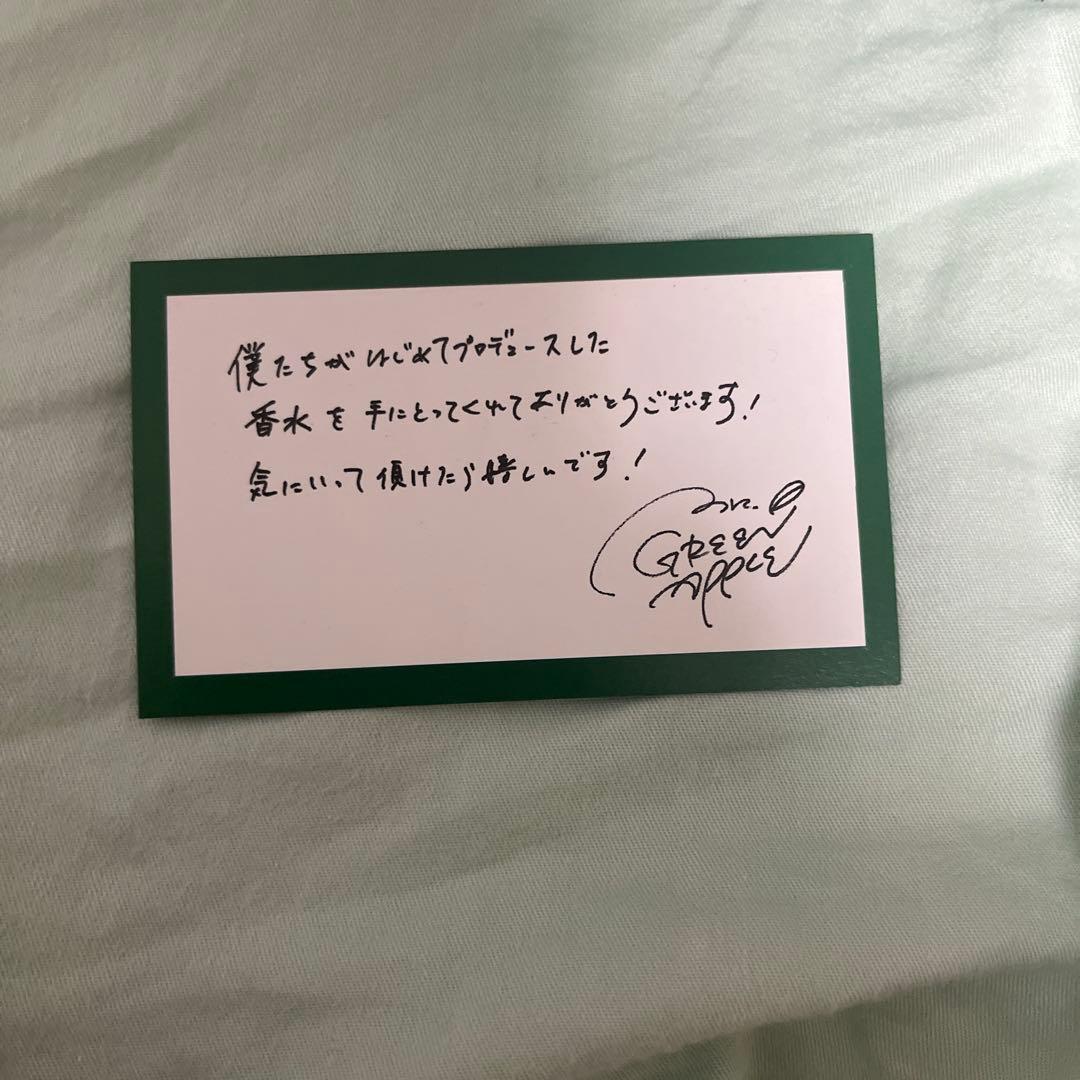 僕たちがはじめてプロデュースした
香水を手にとってくれてありがとうございます!
気にいって頂けたら嬉しいです!
Mr.
GREEN
APPLE